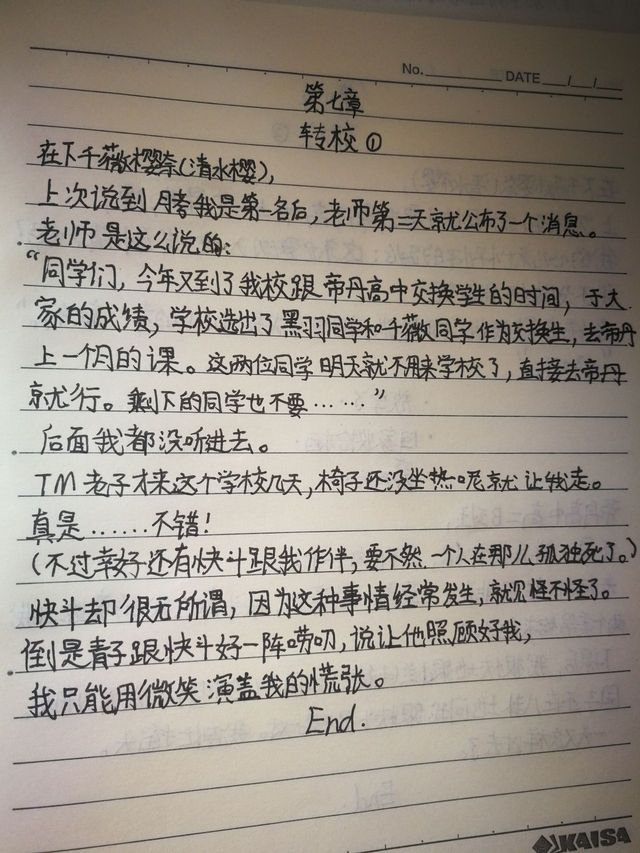 No. DATE / /
第七章
转校①
在下千薇樱奈(清水樱),
上次说到月考我是第一名后,老师第二天就公布了一个消息。
老师是这么说的:
“同学们,今年又到了我校跟帝丹高中交换学生的时间,于大
家的成绩,学校选出了黑羽同学和千薇同学作为交换生,去帝丹
上一个月的课。这两位同学明天就不用来学校了,直接去帝丹
就行。剩下的同学也不要……”
后面我都没听进去。
TM老子才来这个学校几天,椅子还没坐热呢就让我走。
真是……不错!
(不过幸好还有快斗跟我作伴,要不然一个人在那么孤独死了。)
快斗却很无所谓,因为这种事情经常发生,就见怪不怪了。
倒是青子跟快斗好一阵唠叨,说让他照顾好我,
我只能用微笑演盖我的慌张。
End.
KAISA